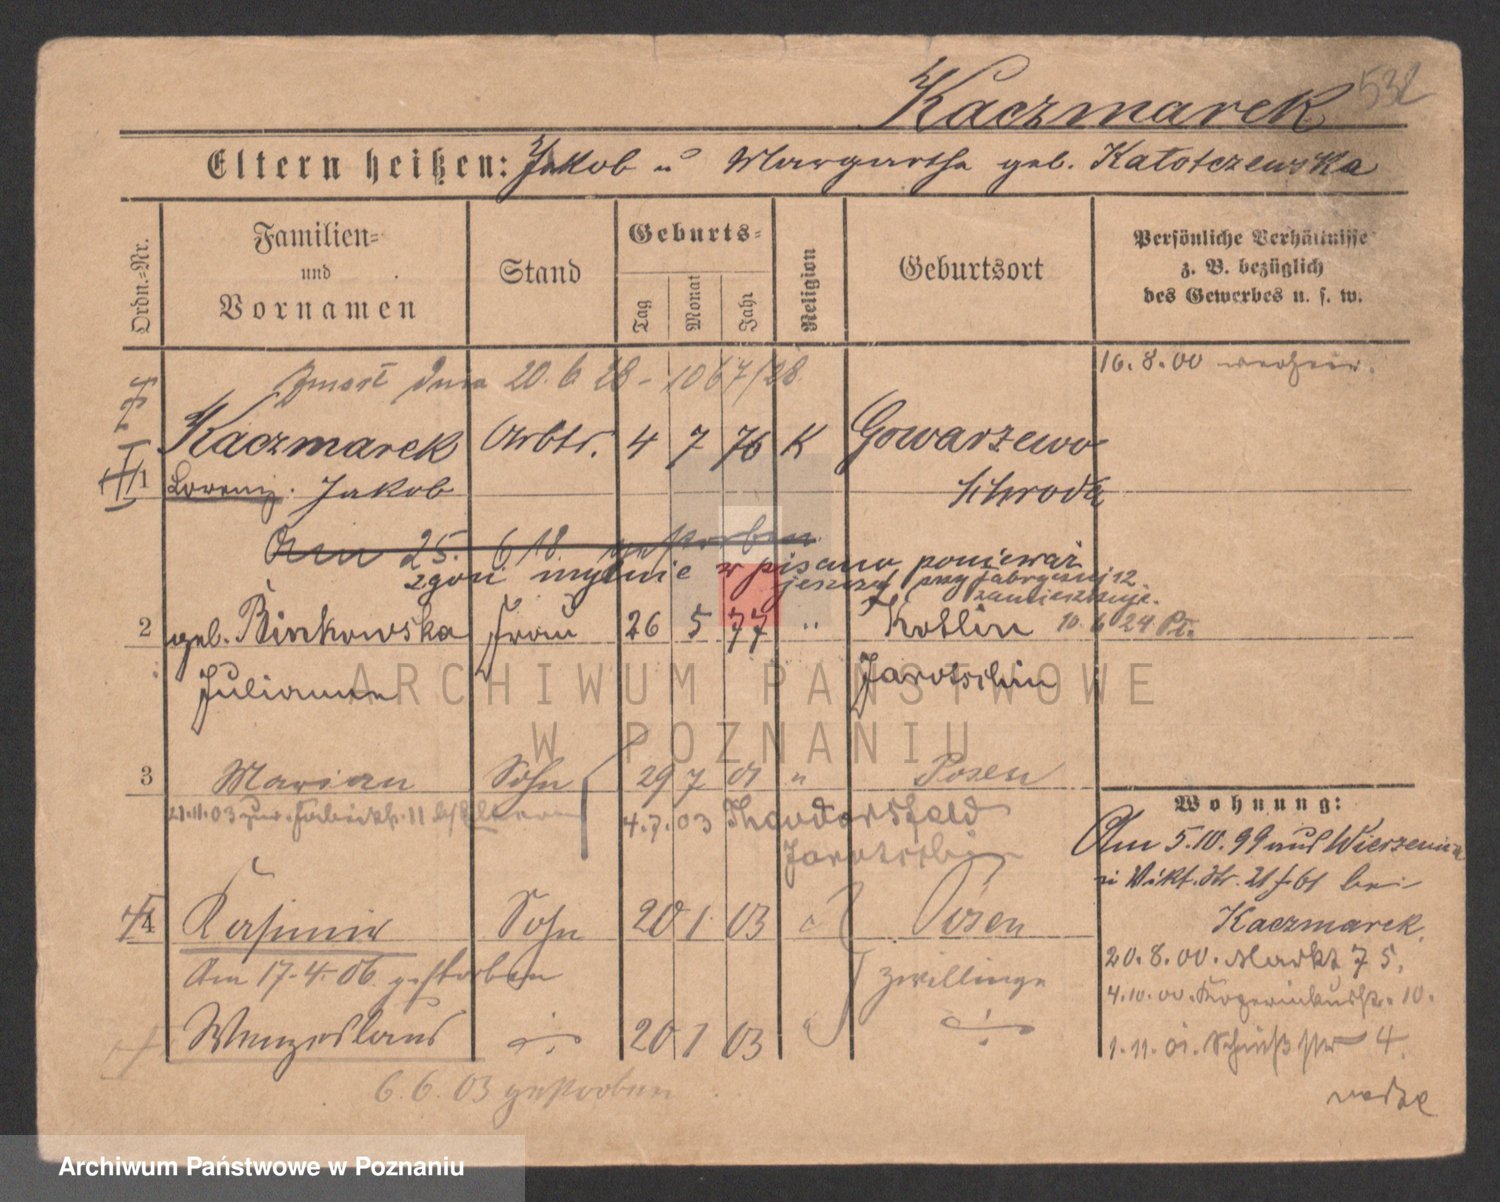 532
Kaczmarek
Eltern heißen: Jakob u Margarethe geb. Katotczewska
Ordn.=Nr.
Familien= und Vornamen
Stand
Geburts=
Tag
Monat
Jahr
Religion
Geburtsort
Persönliche Verhältnisse
z. B. bezüglich
des Gewerbes u. s. w.
16.8.00
Zmarł dnia 20.6.28 - 1067/28
Kaczmarek Arbtr. 4 7 76 K Gowarzewo
1 Lorenz. Jakob Schroda
Am 25. 6 18. gestorben
zgon mylnie wpisano ponieważ
jeszcze przy Fabrycznej 12
zamieszkuje.
2 geb. Binkowska Frau 26 5 77 " Kotlin 10.6.24
Julianna Jarotschin
3 Marian Sohn 29 7 01 " Posen
21.11.03 11 b/Eltern 4.7.03 Theodorsfeld
Jarotschin
4 Kasimir Sohn 20 1 03 Posen
Am 17.4.06. gestorben
Zwillinge
Wenzeslaus 20 1 03
6.6.03 gestorben
Wohnung:
Am 5.10.99 aus Wierzenica
Vikt. Str. 21 bei
Kaczmarek.
20.8.00. Markt 75.
4.10.00. 10.
1.11.01. 4.
ARCHIWUM PAŃSTWOWE
W POZNANIU
Archiwum Państwowe w Poznaniu